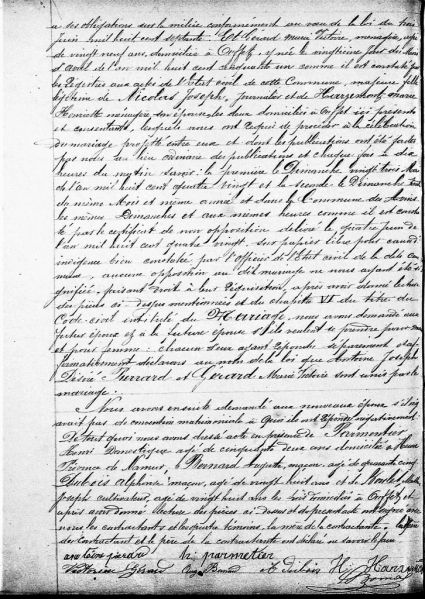 a ses obligations sur la milice conformément au vœu de la loi du trois
Juin mil huit cent septante. Et Gérard Marie Victoire, ménagère, agée
de vingt neuf ans, domiciliée à Orffet, y née le vingtième jour du Mois
d'avril de l'an mil huit cent cinquante un comme il est constaté par
les Registres aux actes de l'Etat civil de cette Commune, majeure, fille
légitime de Nicolas Joseph, journalier et de Marie
Henriette ménagère, son épouse, les deux domiciliés à Orffet ici présents
et consentants, lesquels nous ont requis de procéder à la célébration
du mariage projetté entre eux et dont les publications ont été faites
par nous au lieu ordinaire des publications et chaque fois à dix
heures du matin savoir: la première le Dimanche vingt trois Mai
de l'an mil huit cent quatre vingt et la seconde le Dimanche
du même Mois et même année et dans la Commune de
les mêmes Dimanches et aux mêmes heures comme il est constaté
par le certificat de non opposition délivré le quatre Juin de
l'an mil huit cent quatre vingt. Sur papier libre pour cause d'
indigence bien constatée par l'officier de l'Etat civil de la dite Com
mune, aucune opposition au dit mariage ne nous ayant été si
gnifiée, faisant droit à leur Réquisition, après avoir donné lecture
des pièces ci-dessus mentionnées et du chapitre VI du titre du
Code civil intitulé du Mariage, nous avons demandé aux
futurs époux et à la future épouse s'ils veulent se prendre pour mari
et pour femme: chacun d'eux ayant répondu séparément et af
firmativement déclarons au nom de la loi que Antoine Joseph
Désiré et Gérard Marie Victoire sont unis par le
mariage.
Nous avons ensuite demandé aux nouveaux époux s'il y
avait pas de convention matrimoniale à quoi ils ont répondu négativement.
De tout quoi nous avons dressé acte en présence de Parmentier
Henri Domestique agé de cinquante deux ans domicilié à
Province de Namur, de Bernard Auguste, maçon, agé de quarante cinq
Dubois Alphonse maçon, agé de vingt huit ans et de
Joseph cultivateur, agé de vingt huit ans les trois domiciliés à Orffet, et
après avoir donné lecture des pièces ci-dessus et du présent acte ont signé avec
nous les contractants et les quatre témoins, la mère de la contractante. La mère
du contractant et le père de la contractante ont déclaré ne savoir le faire
h. parmetier
Victorine Gérard Aug Bernard A Dubois H.